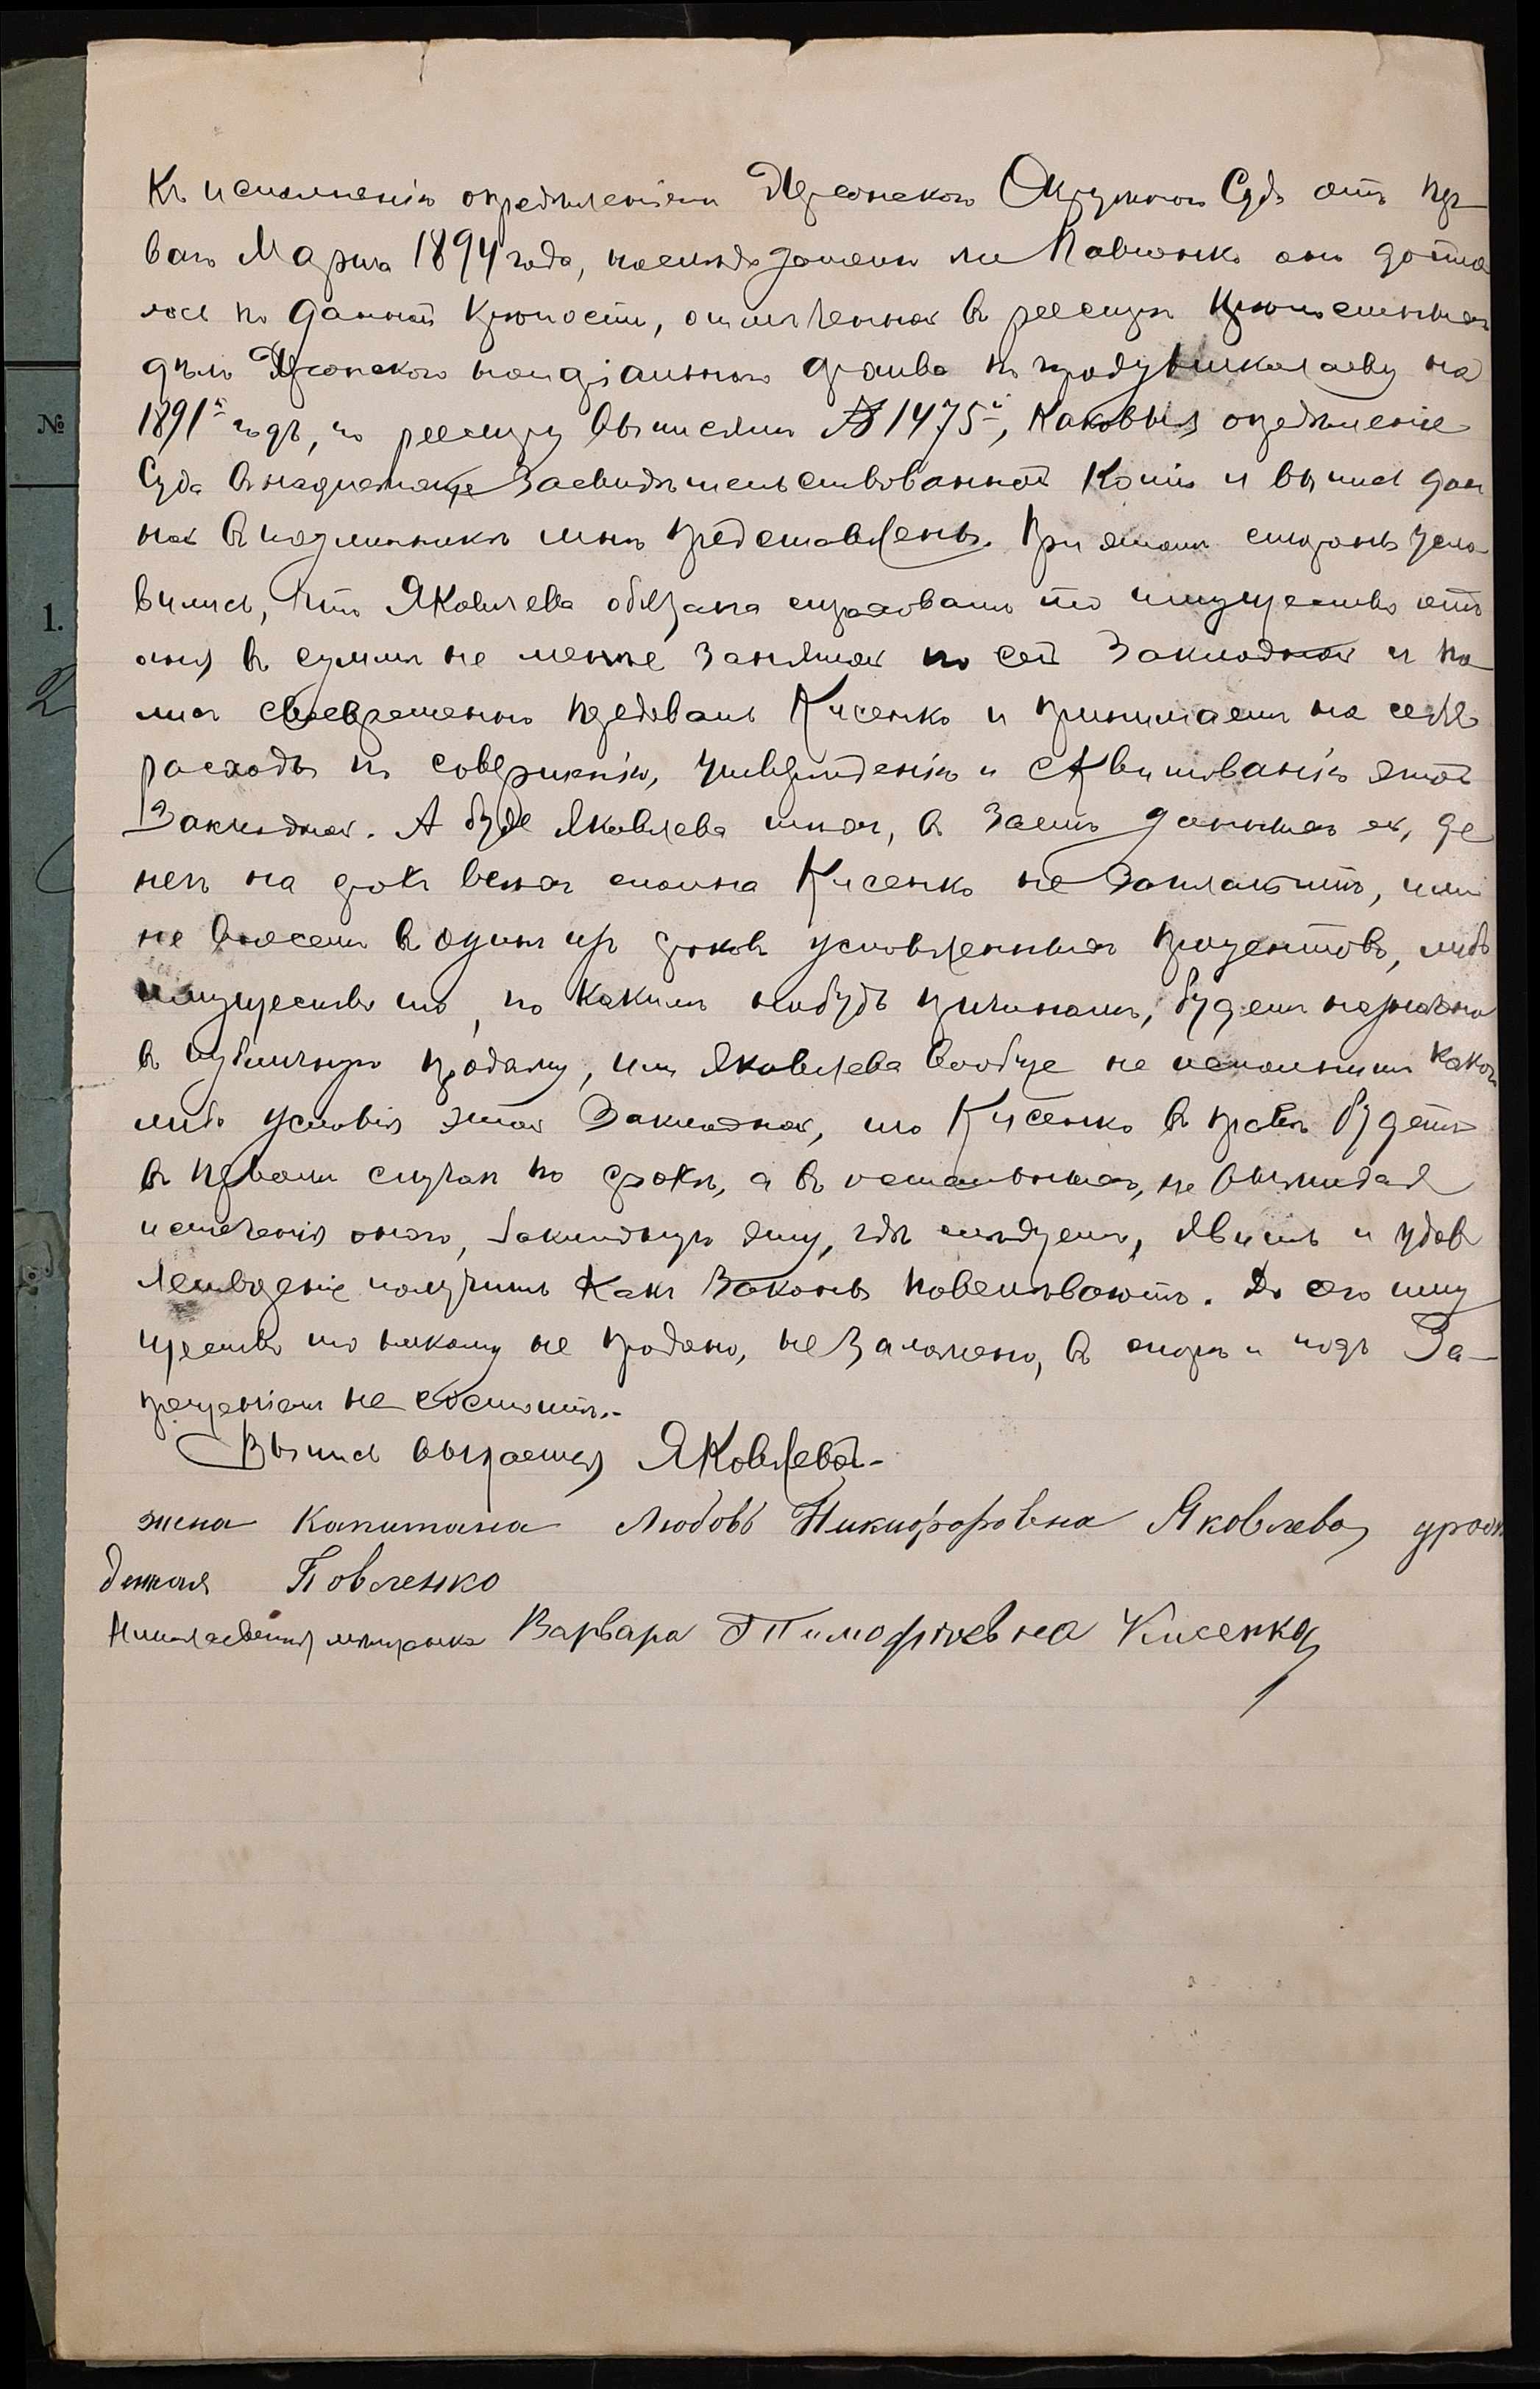 №
1.
2
къ исполненію опредѣленіемъ Херсонскаго Окружнаго Суда отъ пер-
ваго Марта 1894 года, наслѣдодателю же Павленко оно доста
лось по данной крѣпости, отмѣченной въ реестрѣ крѣпостныхъ
дѣлъ Херсонскаго нотаріальнаго архива по городу Николаеву на
1891й годъ, по реестру выписямъ № 1475й, каковыя опредѣленіе
Суда въ надлежаще засвидѣтельствованной копіи и выпись дан
ной въ подлинникѣ мнѣ представлены. При этомъ стороны усло
вились, что Яковлева обязана страховать то имущество отъ
огня въ суммѣ не менѣе занятой по сей закладной и по
лисъ своевременно передавать Кисенко и принимаетъ на себя
расходы по совершенію, утвержденію и сквитованію этой
закладной. А буде Яковлева тѣхъ, въ заемъ данныхъ ей, де
негъ на срокъ всѣхъ сполна Кисенко не заплатитъ, или
не внесетъ въ одинъ изъ сроковъ условленныхъ процентовъ, либо
имущество то, по какимъ нибудь причинамъ, будетъ назначено
въ публичную продажу, или Яковлева вообще не исполнитъ какого
либо условія этой закладной, то Кисенко въ правѣ будетъ
въ первомъ случаѣ по срокѣ, а въ остальныхъ, не выжидая
истеченія онаго, закладную эту, гдѣ слѣдуетъ, явить и удов
летвореніе получить какъ законы повелѣваютъ. До сего иму
щество то никому не продано, не заложено, въ спорѣ и подъ за-
прещеніемъ не состоитъ.-
Выпись выдается Яковлевой.-
жена Капитана Любовь Никифоровна Яковлева, урож
денная Повленко
Николаевская мѣщанка Варвара Тимофѣевна Кисенко